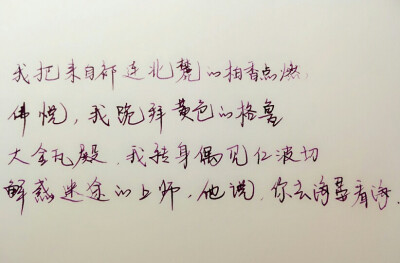 我把来自祁连北麓的柏香点燃
佛悦,我跪拜黄色的格鲁
大金瓦殿,我转身偶见仁波切
解惑迷途的上师,他说,你去海晏看海.